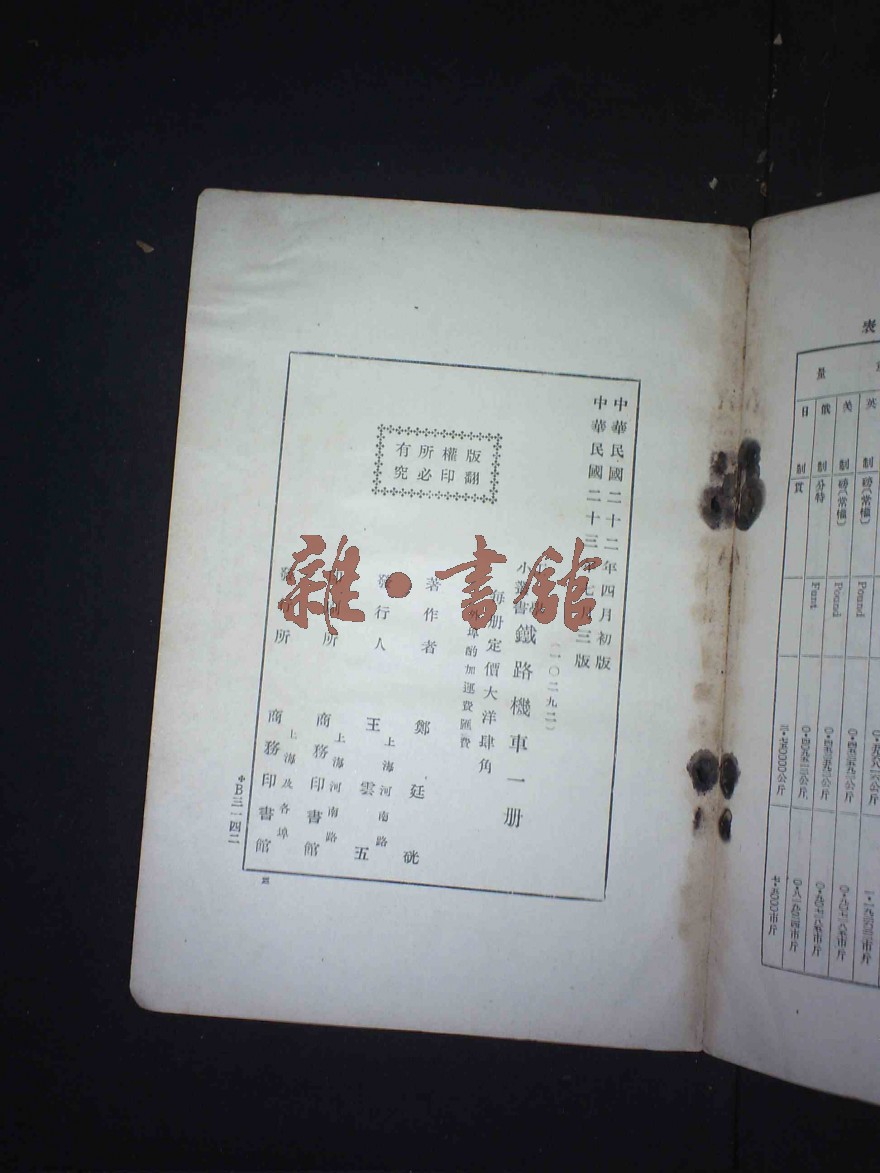 中華民國二十二年四月初版
中華民國二十三年七月三版
(一〇二九二)
小叢書
鐵路機車一册
每册定價大洋肆角
外埠酌加運費匯費
著作者 鄭廷硄
發行人 王雲五
上海河南路
印刷所 商務印書館
上海河南路
發行所 商務印書館
上海及各埠
版權所有
翻印必究
*B三一四二
雜·書館
表
量
英 制 磅(常權) Pound
美 制 磅(常權) Pound 〇·四五三五九二公斤 〇·九〇七一八市斤
俄 制 分特 Funt
日 制 貫 三·七五〇〇〇公斤 七·五〇〇〇市斤